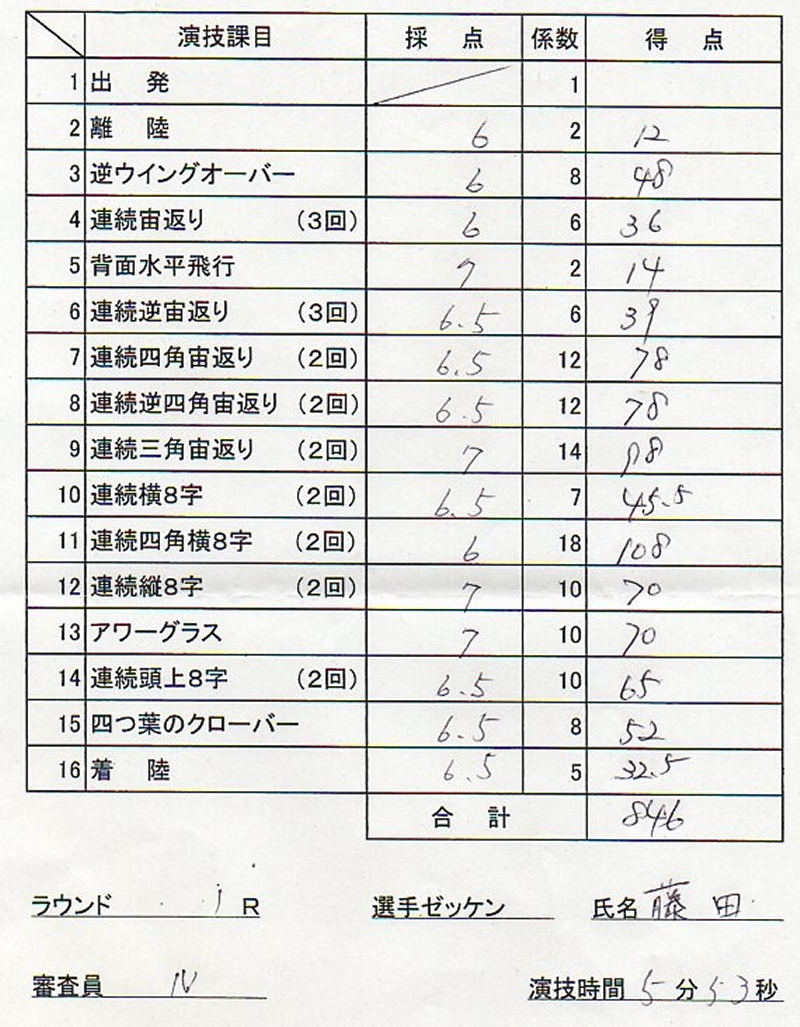 演技課目 採点 係数 得点
1 出発 1
2 離陸 6 2 12
3 逆ウイングオーバー 6 8 48
4 連続宙返り (3回) 6 6 36
5 背面水平飛行 7 2 14
6 連続逆宙返り (3回) 6.5 6 39
7 連続四角宙返り (2回) 6.5 12 78
8 連続逆四角宙返り (2回) 6.5 12 78
9 連続三角宙返り (2回) 7 14 98
10 連続横8字 (2回) 6.5 7 45.5
11 連続四角横8字 (2回) 6 18 108
12 連続縦8字 (2回) 7 10 70
13 アワーグラス 7 10 70
14 連続頭上8字 (2回) 6.5 10 65
15 四つ葉のクローバー 6.5 8 52
16 着陸 6.5 5 32.5
合計 846
ラウンド 1 R 選手ゼッケン 氏名 藤田
審査員 IV 演技時間 5 分 53 秒